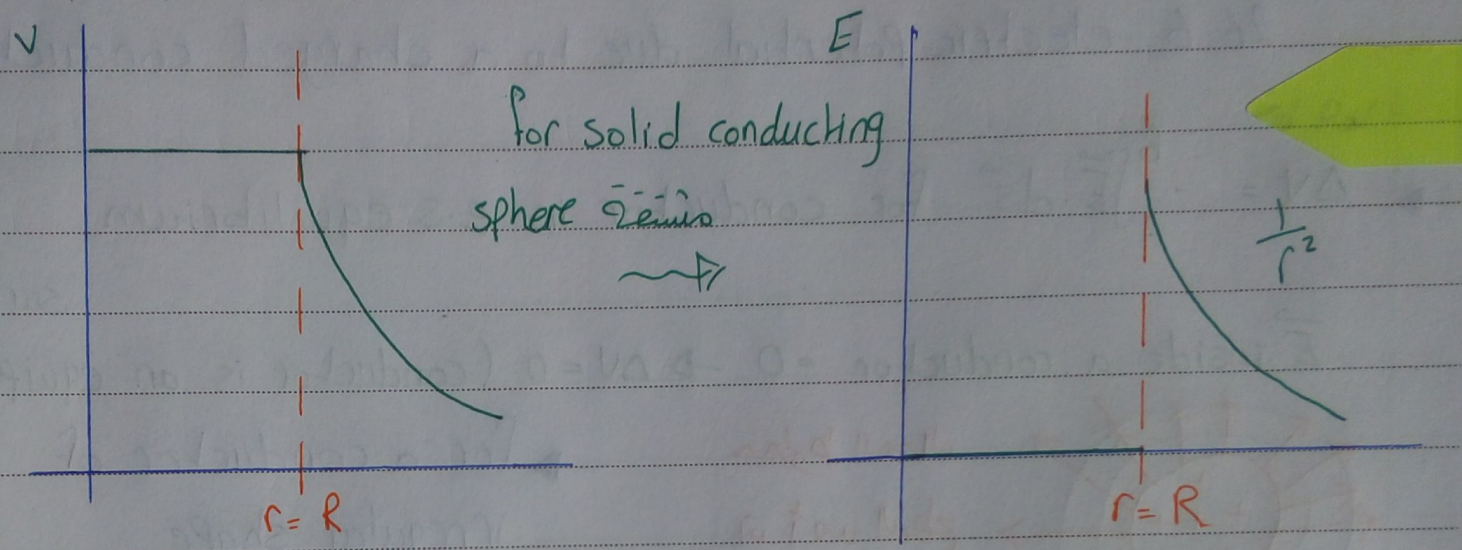 V
E
for solid conducting
sphere
1/r²
r = R
r = R